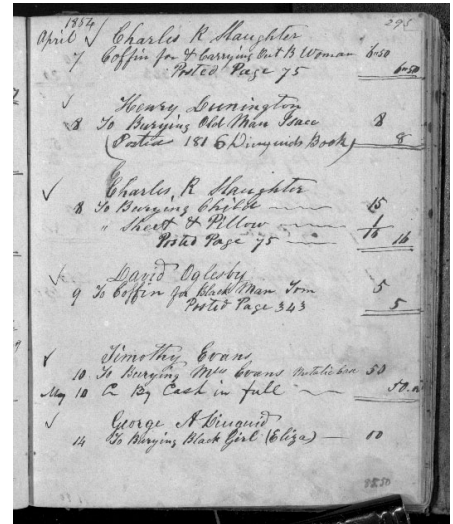 1854 295
April Charles R Slaughter
7 Coffin for & Carrying Out B Woman 6-50
Posted Page 75 6-50
Henry Dunington
8 To Burying Old Man Isaac 8
(Posted 181 6 Diuguids Book) 8
Charles R Slaughter
8 To Burying Childe 15
" Sheet & Pillow 1
Posted Page 75 16 16
David Oglesby
9 To Coffin for Black Man Tom 5
Posted Page 343 5
Timothy Evans
10 To Burying Mrs Evans 50
May 10 Cr By Cash in full 50.
George A Diuguid
14 To Burying Black Girl (Eliza) 10